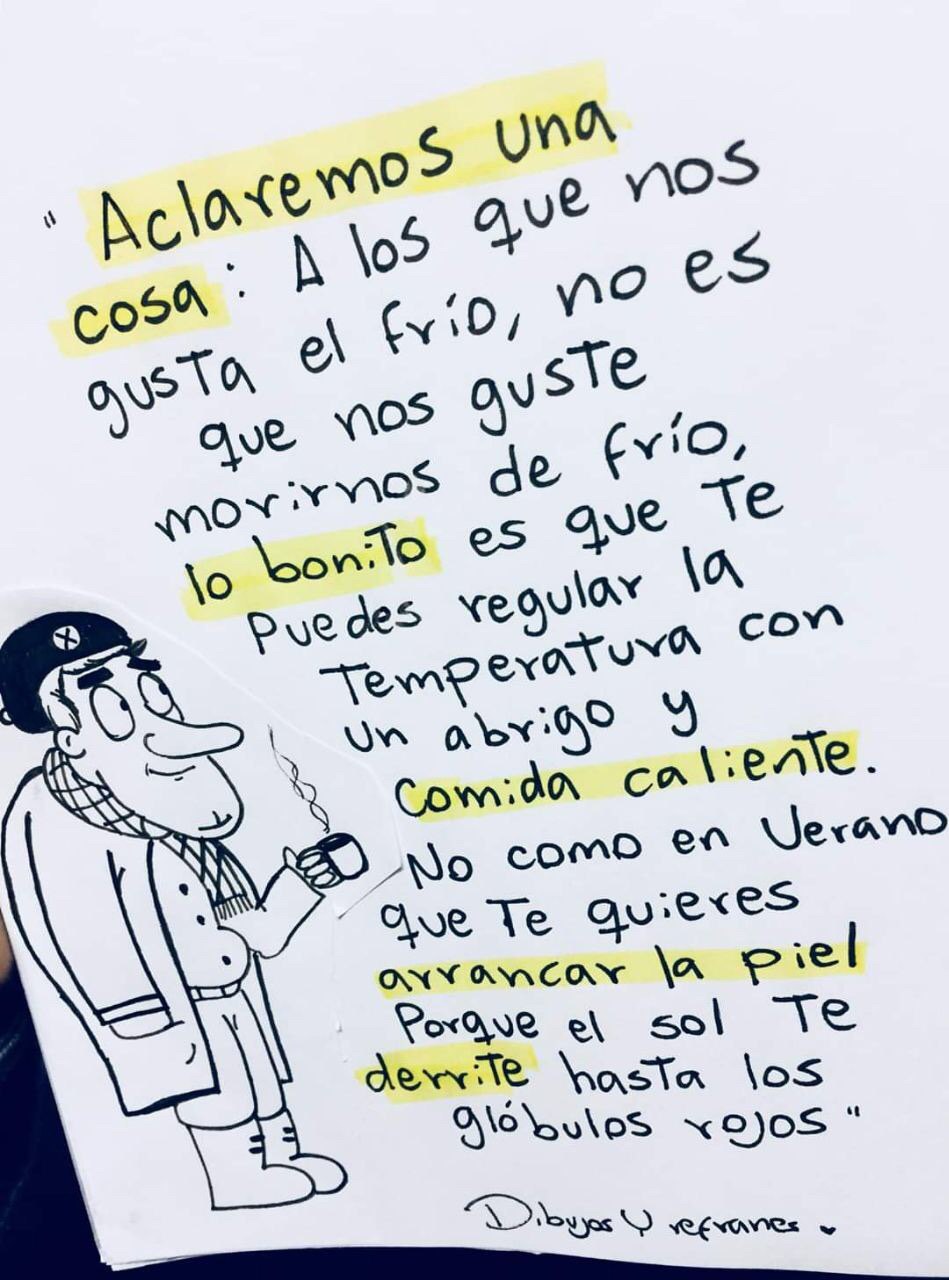 " Aclaremos una
cosa: A los que nos
gusta el frío, no es
que nos guste
morirnos de frío,
lo bonito es que te
Puedes regular la
Temperatura con
un abrigo y
comida caliente.
No como en Verano
que te quieres
arrancar la piel
Porque el sol te
derrite hasta los
glóbulos rojos "
Dibujos y refranes